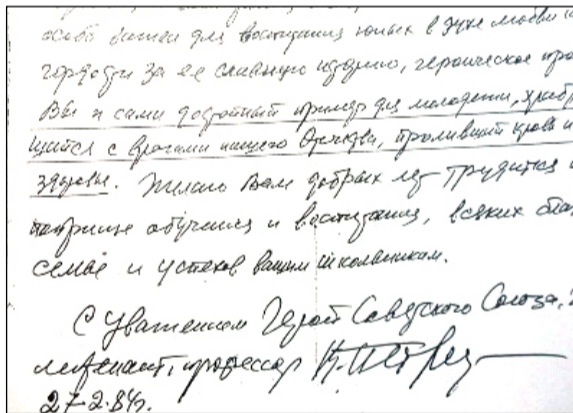 особо важен для воспитания юных в духе любви и
гордости за ее славную историю, героическое про
Вы и сами достойный пример для молодежи, храбр
щийся с врагами нашего Отечества, проливший кровь и
здоровье. Желаю Вам добрых лет трудиться
поприще обучения и воспитания, всяких благ
семье и успехов вашим школьникам.
С уважением Герой Советского Союза,
лейтенант, профессор
27-2.84г.